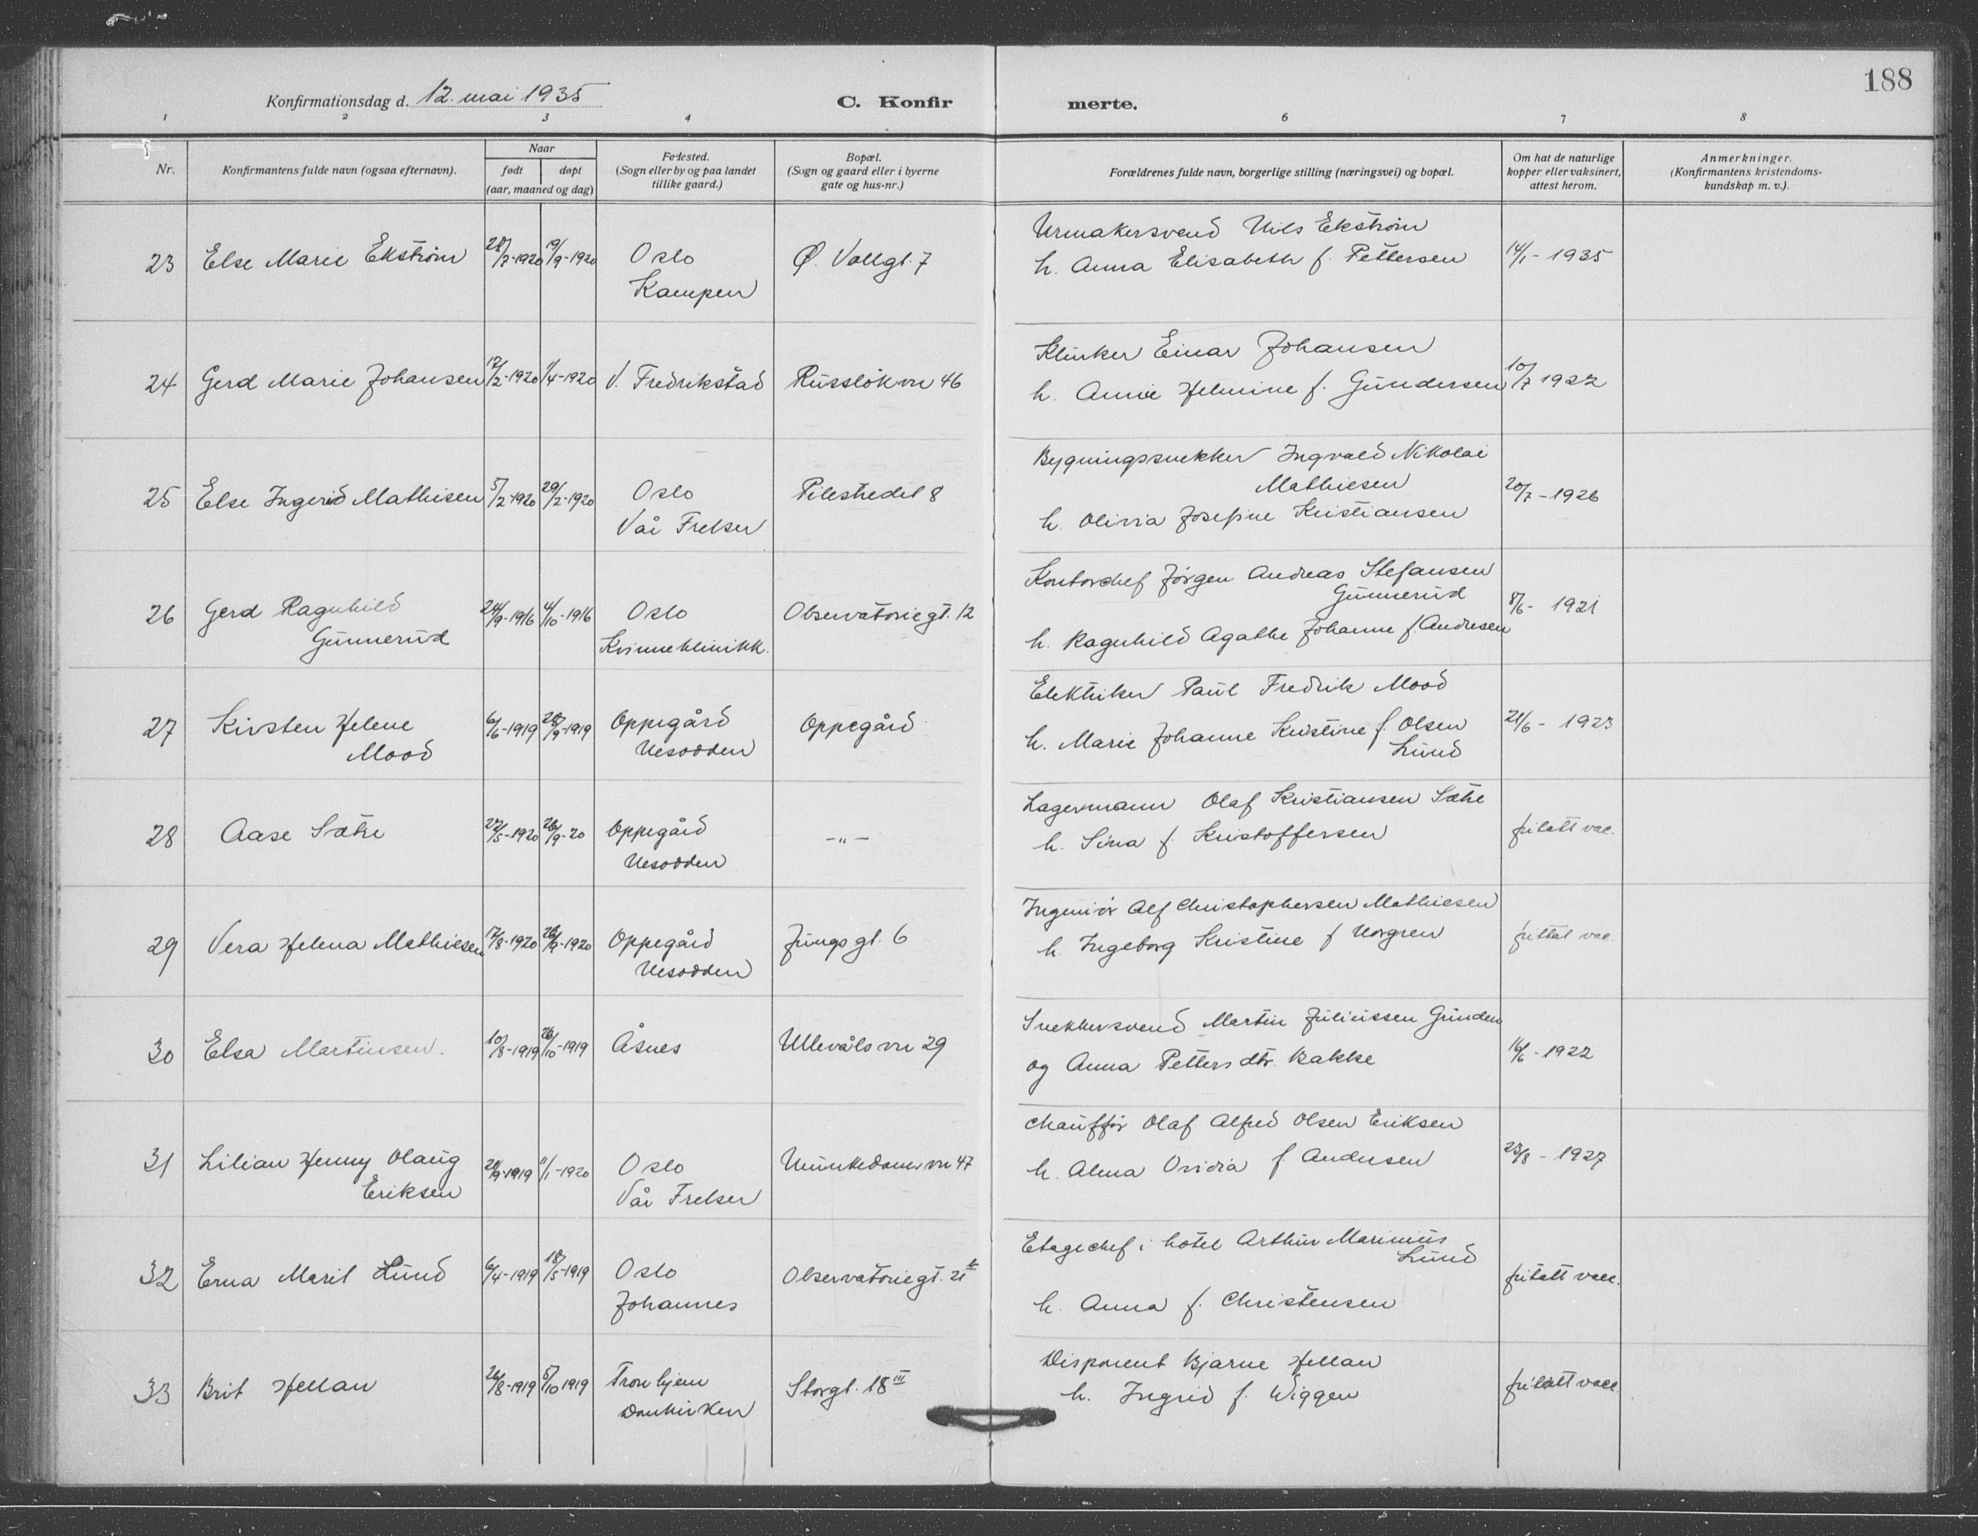 188
Konfirmationsdag d. 12. mai 1935
C. Konfirmerte.
1 2 3 4 6 7 8
5
Nr.
Konfirmantens fulde navn (ogsaa efternavn).
Naar
født døpt
(aar, maaned og dag)
Fødested.
(Sogn eller by og paa landet
tillike gaard.)
Bopæl.
(Sogn og gaard eller i byerne
gate og hus-nr.)
Forældrenes fulde navn, borgerlige stilling (næringsvei) og bopæl.
Om hat de naturlige
kopper eller vaksinert,
attest herom.
Anmerkninger.
(Konfirmantens kristendoms-
kundskap m. v.).
23 Else Marie Ekstrøm 28/7-1920 19/9-1920 Oslo Ø. Vollgt. 7
Kampen
Urmakersvend Nils Ekstrøm
h. Anna Elisabeth f. Pettersen 14/1-1935
24 Gerd Marie Johansen 12/2-1920 1/4-1920 V. Fredrikstad Russløkvn 46
Klinker Einar Johansen
h. Annie Helmine f. Gundersen 10/7 1922
25 Else Ingerid Mathisen 5/2-1920 29/2-1920 Oslo Pilestredet 8
Vår Frelser
Bygningssnekker Ingvald Nikolai
Mathiesen
h. Olivia Josefine Kristiansen 20/7-1926
26 Gerd Ragnhild 24/9-1916 4/10-1916 Oslo Observatoriegt. 12
Gunnerud Kvinneklinikk.
Kontorchef Jørgen Andreas Stefansen
Gunnerud
h. Ragnhild Agathe Johanne f. Andresen 8/6- 1921
27 Kirsten Helene 6/6-1919 28/9-1919 Oppegård Oppegård
Mood Nesodden
Elektriker Paul Fredrik Mood
h. Marie Johanne Kristine f. Olsen
Lund 21/6- 1923
28 Aase Sætre 22/5-1920 26/9-20 Oppegård —„—
Nesodden
Lagermann Olaf Kristiansen Sætre
h. Sina f. Kristoffersen fritatt vac.
29 Vera Helena Mathiesen 17/8-1920 26/9-1920 Oppegård Jungsgt. 6
Nesodden
Ingeniør Alf Christophersen Mathiesen
h. Ingeborg Kristine f Norgren frittat vac.
30 Elsa Martinsen. 10/8-1919 26/10-1919 Åsnes Ullevålsvn 29
Snekkersvend Martin Juliussen Grunden
og Anna Pettersdtr. Bakke 16/6-1922
31 Lilian Henny Olaug 21/9-1919 11/1-1920 Oslo Munkedamsvn 47
Eriksen Vår Frelser
Chauffør Olaf Alfred Olsen Eriksen
h. Alma Ovidia f Andersen 23/8-1927
32 Erna Marit Lund 6/4-1919 18/5-1919 Oslo Observatoriegt. 21
Johannes
Etagechef i hotel Arthur Marinius
Lund
h. Anna f. Christensen fritatt vacc.
33 Brit Hellan 26/8-1919 5/10 1919 Tronhjem Storgt. 18 III
Domkirken
Disponent Bjarne Hellan
h. Ingrid f. Wiggen fritatt vacc.